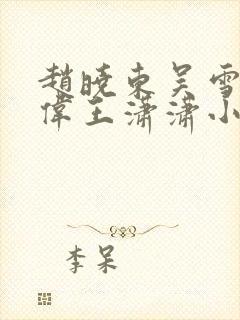 趙曉東吴雪
偉王瀟瀟小
李呆